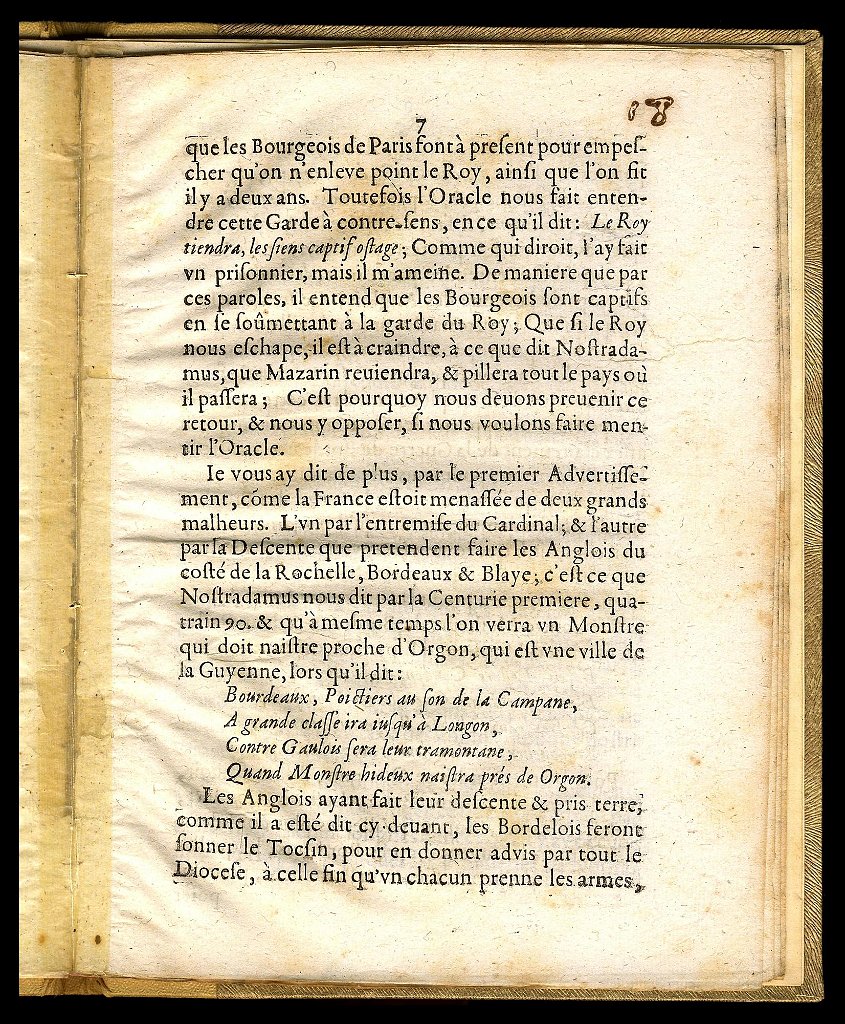 7
que les Bourgeois de Paris font à preſent pour empeſ-
cher qu'on n'enleve point le Roy, ainſi que l'on fit
il y a deux ans. Toutefois l'Oracle nous fait enten-
dre cette Garde à contre-ſens, en ce qu'il dit: Le Roy
tiendra, les ſiens captif oſtage; Comme qui diroit, l'ay fait
vn priſonnier, mais il m'ameine. De maniere que par
ces paroles, il entend que les Bourgeois ſont captifs
en ſe ſoûmettant à la garde du Roy; Que ſi le Roy
nous eſchape, il eſt à craindre, à ce que dit Noſtrada-
mus, que Mazarin reuiendra, & pillera tout le pays où
il paſſera; C'eſt pourquoy nous deuons preuenir ce
retour, & nous y oppoſer, ſi nous voulons faire men-
tir l'Oracle.
Ie vous ay dit de plus, par le premier Advertiſſe-
ment, cõme la France eſtoit menaſſée de deux grands
malheurs. L'vn par l'entremiſe du Cardinal; & l'autre
par la Deſcente que pretendent faire les Anglois du
coſté de la Rochelle, Bordeaux & Blaye; c'eſt ce que
Noſtradamus nous dit par la Centurie premiere, qua-
train 90. & qu'à meſme temps l'on verra vn Monſtre
qui doit naiſtre proche d'Orgon, qui eſt vne ville de
la Guyenne, lors qu'il dit:
Bourdeaux, Poictiers au ſon de la Campane,
A grande claſſe ira iuſqu'à Longon,
Contre Gaulois ſera leur tramontane,
Quand Monſtre hideux naiſtra prés de Orgon.
Les Anglois ayant fait leur deſcente & pris terre,
comme il a eſté dit cy-deuant, les Bordelois feront
ſonner le Tocſin, pour en donner advis par tout le
Dioceſe, à celle fin qu'vn chacun prenne les armes,